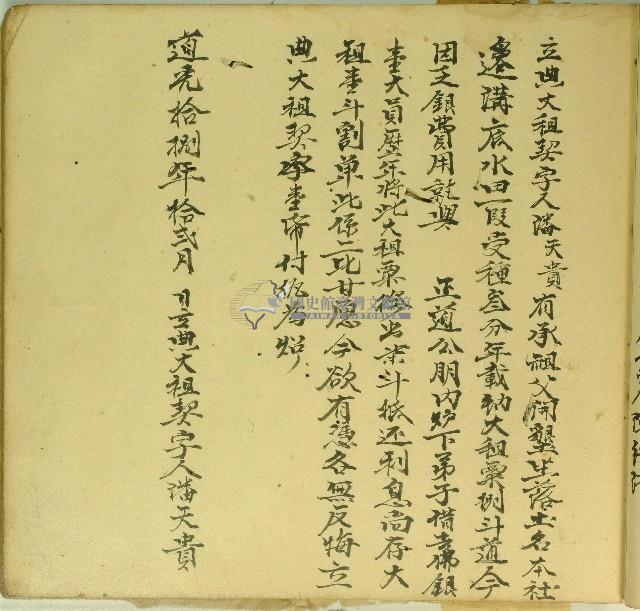 立典大租契字人潘天貴有承祖父開墾坐落土名本社
邊溝底水田一段受種叁分年載納大租粟捌斗道今
因乏銀費用就與 正道公朋內爐下弟子借去佛銀
壹大員歷年將此大租粟撥出柒斗抵还利息尚存大
租壹斗割單此係二比甘愿今欲有憑各無反悔立
典大租契字壹帋付執為炤
道光拾捌年拾弍月 日立典大租契字人潘天貴
國史館臺灣文獻館
TAIWAN HISTORICA